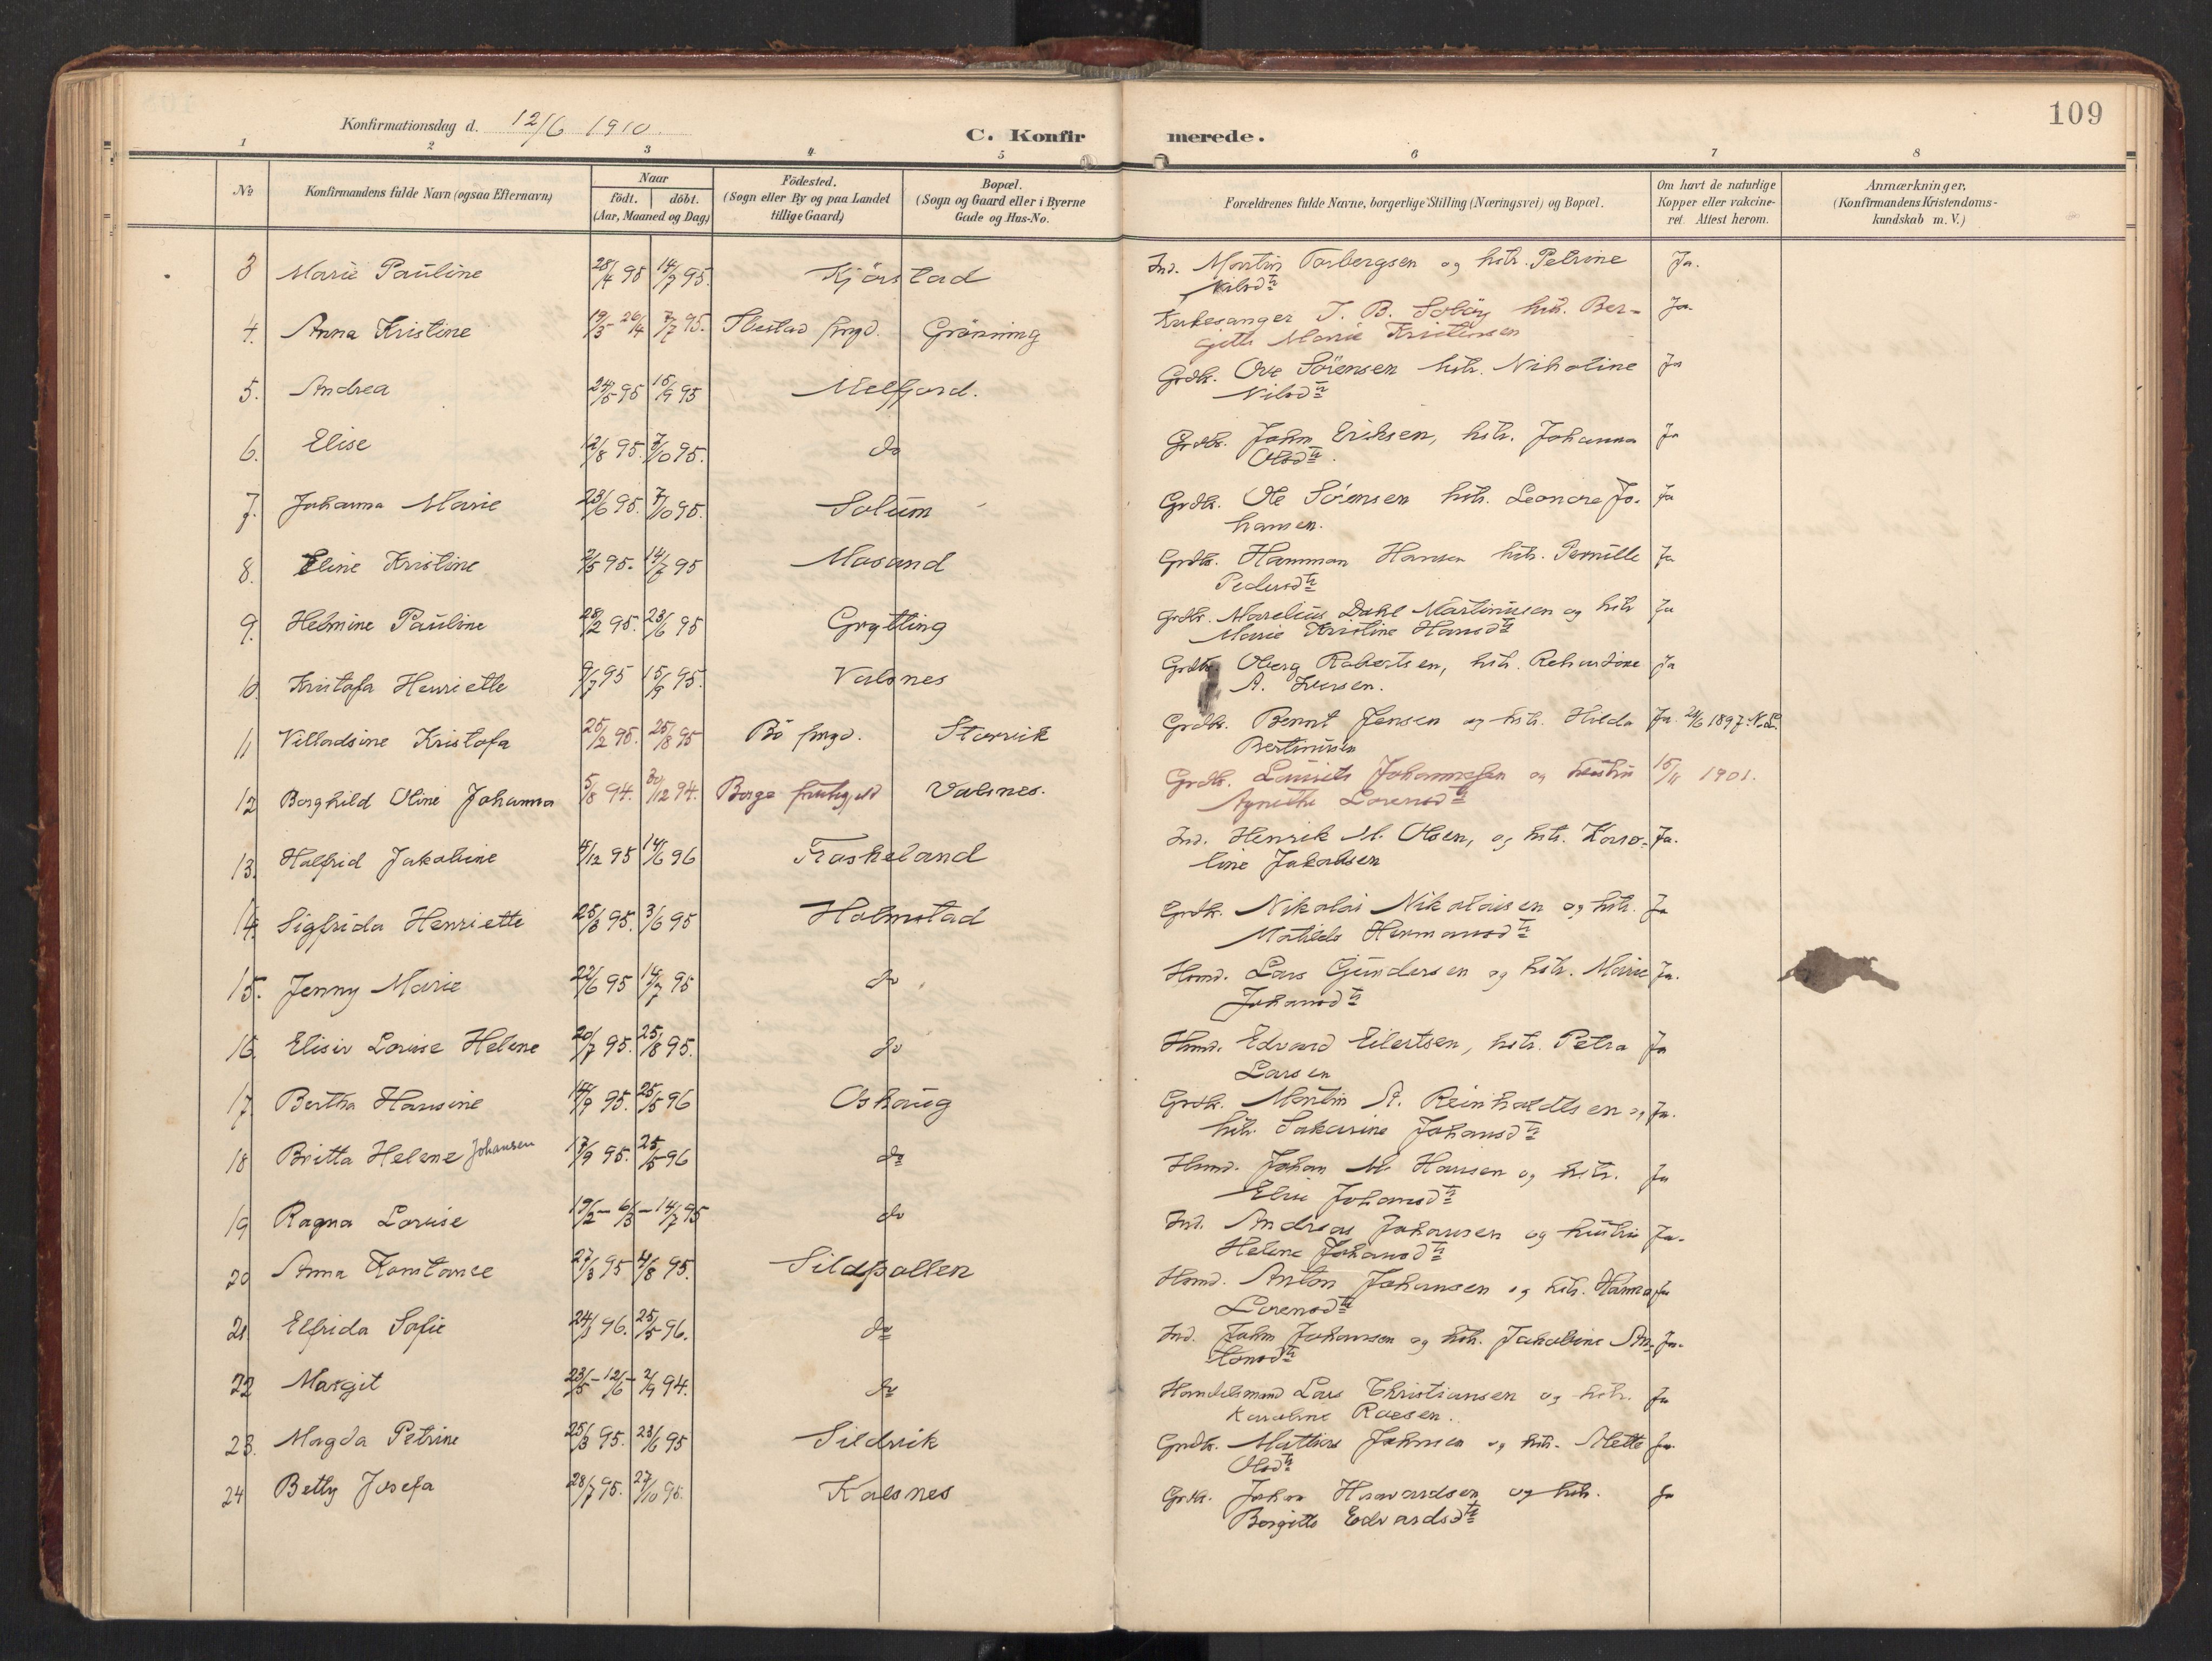 109
Konfirmationsdag d. 12/6 1910.
C. Konfirmerede.
1 2 3 4 5 6 7 8
No
Konfirmandens fulde Navn (ogsaa Efternavn)
Naar
födt. döbt.
(Aar, Maaned og Dag)
Födested.
(Sogn eller By og paa Landet
tillige Gaard)
Bopæl.
(Sogn og Gaard eller i Byerne
Gade og Hus-No.
Forældrenes fulde Navne, borgerlige Stilling (Næringsvei) og Bopæl.
Om havt de naturlige
Kopper eller vakcine-
ret. Attest herom.
Anmærkninger,
(Konfirmandens Kristendoms-
kundskab m. V.)
3 Marie Pauline 28/4 95 14/7 95. Kjörstad Ind. Martin Torbergsen og hstr. Petrine Ja.
Nilsdtr
4. Anna Kristine 19/3 26/4 7/7 95. Ibestad prgd. Grönning Kirkesanger J. B. Solöy hstr. Ber- Ja.
gitte Marie Kristensen
5. Andrea 24/5 95 15/9 95 Melfjord. Grdbr. Ove Sörensen hstr. Nikoline Ja
Nilsdtr
6. Elise 12/8 95. 7/10 95. do Grdbr. John Eriksen, hstr. Johanna Ja
Olsdtr.
7. Johanna Marie 23/6 95. 7/10 95. Solum Grdbr. Ole Sörensen hstr. Leonore Jo- Ja
hansen.
8. Eline Kristine 2/5 95. 14/7 95 Masand Grdbr. Hamman Hansen hstr. Pernille Ja
Pedersdtr
9. Helmine Pauline 28/2 95. 23/6 95 Grytting Grdbr. Marelius Dahl Martinusen og hstr Ja
Marie Kristine Hansdtr
10. Kristofa Henriette 9/7 95 15/9 95. Valsnes Grdbr. Oberg Robertsen, hstr. Ja
A. Iversen.
11 Villadsine Kristofa 25/2 95. 25/8 95 Bö prgd. Storvik Grdbr. Bernt Jensen og hstr. Hilda Ja. 24/6 1897. N.L.
Bertinusen
12 Borghild Oline Johanna 5/8 94. 30/12 94. Borge Valsnes. Grdbr. Laurits Johannesen og hustru 15/11 1901.
Agnethe Lorensdtr
13. Halfrid Jakobine 4/12 95 14/6 96 Traskeland Ind. Henrik M. Olsen, og hstr. Karo- Ja.
line Jakobsen
14. Sigfrida Henriette 25/3 95. 3/6 95 Holmstad Grdbr. Nikolai Nikolaisen og hstr. Ja
Matilde Hermansdtr
15. Jenny Marie 22/6 95 14/7 95 do Hsmd. Lars Gundersen og hstr. Marie Ja.
Johansdtr
16. Elisiv Lovise Helene 20/7 95. 25/8 95. do Hsmd. Edvard Eilertsen, hstr. Petra Ja
Larsen
17. Bertha Hansine 14/9 95. 25/5 96 Oshaug Grdbr. Martin A. Reinholdtsen og Ja.
hstr. Sakarine Johansdtr
18 Britta Helene Johansen 17/9 95. 25/5 96 do Hsmd. Johan M. Hansen og hstr. Ja
Elise Johansdtr
19 Ragna Lovise 19/2 - 6/3 - 14/7 95 do Ind. Andreas Johansen og hustru Ja.
Helene Johansdtr
20 Anna Konstanse 27/3 95 4/8 95. Sildpollen Hsmd. Anton Johansen og hstr. Hanna Ja
Lorensdtr
21 Elfrida Sofie 24/1 96. 25/5 96. do Ind. John Johansen og hstr. Jakobine An- Ja.
tonsdtr
22 Margit 23/5 - 12/6 - 2/9 94. do Handelsmand Lars Christiansen og hstr. Ja
Karoline Roesen.
23. Magda Petrine 25/3 95. 23/6 95 Sildvik Grdbr. Mathias Johnsen og hstr. Mette Ja.
Olsdtr
24 Betty Josefa 28/7 95. 27/10 95. Kalsnes Grdbr. Johan Haavardsen og hstr. Ja
Bergitte Edvardsdtr